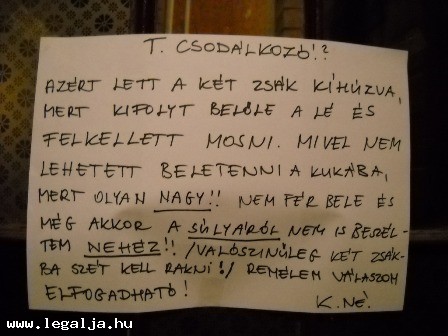 T. CSODÁLKOZÓ!?
AZÉRT LETT A KÉT ZSÁK KIHÚZVA,
MERT KIFOLYT BELŐLE A LÉ ÉS
FELKELLETT MOSNI. MIVEL NEM
LEHETETT BELETENNI A KUKÁBA,
MERT OLYAN NAGY!! NEM FÉR BELE ÉS
MÉG AKKOR A SÚLYÁRÓL NEM IS BESZÉL-
TEM NEHÉZ!! /VALÓSZINŰLEG KÉT ZSÁK-
BA SZÉT KELL RAKNI!/ REMÉLEM VÁLASZOM
ELFOGADHATÓ!
K. NÉ.
www.legalja.hu